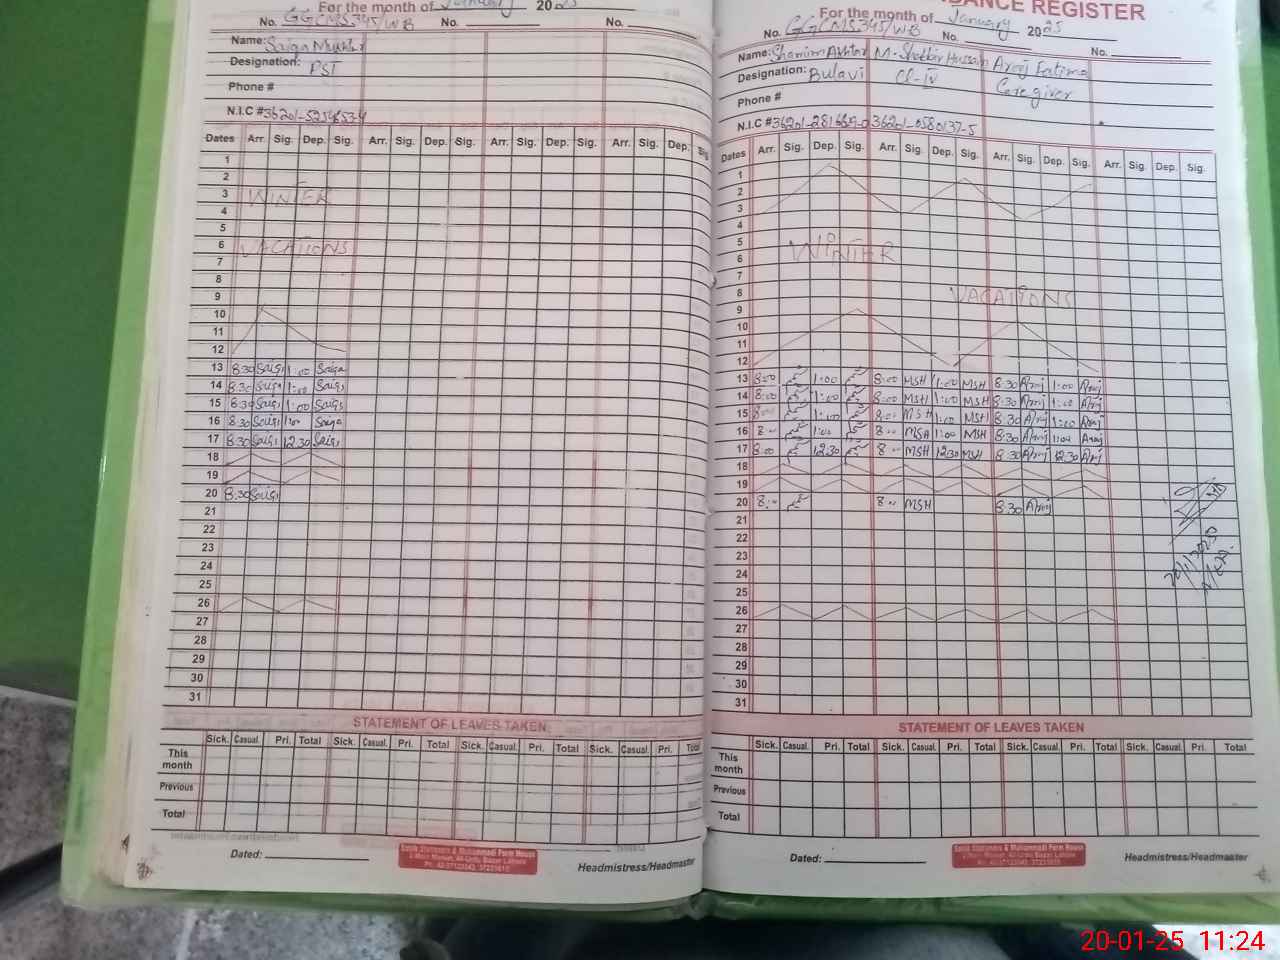 For the month of January 2025
No. GGCMS345/WB No. No.
Name: Saiqa Mukhtar
Designation: PST
Phone #
N.I.C #
Dates Arr. Sig. Dep. Sig. Arr. Sig. Dep. Sig. Arr. Sig. Dep. Sig. Arr. Sig. Dep. Sig.
1
2
3 WINTER
4
5
6 VACATIONS
7
8
9
10
11
12
13 8:30 Saiqa 1:00 Saiqa
14 8:30 Saiqa 1:00 Saiqa
15 8:30 Saiqa 1:00 Saiqa
16 8:30 Saiqa 1:00 Saiqa
17 8:30 Saiqa 12:30 Saiqa
18
19
20 8:30 Saiqa
21
22
23
24
25
26
27
28
29
30
31
STATEMENT OF LEAVES TAKEN
Sick. Casual. Pri. Total Sick. Casual. Pri. Total Sick. Casual. Pri. Total Sick. Casual. Pri. Total
This month
Previous
Total
Dated:
Headmistress/Headmaster
DANCE REGISTER
For the month of January 2025
No. GGCMS345/WB No. No.
Name: Shamim Akhtar M. Shabbir Hussain Areej Fatima
Designation: Bulavi Cl-IV Caregiver
Phone #
N.I.C # 36201-0580137-5
Dates Arr. Sig. Dep. Sig. Arr. Sig. Dep. Sig. Arr. Sig. Dep. Sig. Arr. Sig. Dep. Sig.
1
2
3
4
5
6 WINTER
7
8 VACATIONS
9
10
11
12
13 8:00 1:00 8:00 MSH 1:00 MSH 8:30 Areej 1:00 Areej
14 8:00 1:00 8:00 MSH 1:00 MSH 8:30 Areej 1:00 Areej
15 8:00 1:00 8:00 MSH 1:00 MSH 8:30 Areej 1:00 Areej
16 8:00 1:00 8:00 MSH 1:00 MSH 8:30 Areej 1:00 Areej
17 8:00 12:30 8:00 MSH 12:30 MSH 8:30 Areej 12:30 Areej
18
19
20 8:00 8:00 MSH 8:30 Areej
21
22
23
24
25
26
27
28
29
30
31
20/1/2025
STATEMENT OF LEAVES TAKEN
Sick. Casual. Pri. Total Sick. Casual. Pri. Total Sick. Casual. Pri. Total Sick. Casual. Pri. Total
This month
Previous
Total
Dated:
Headmistress/Headmaster
20-01-25 11:24